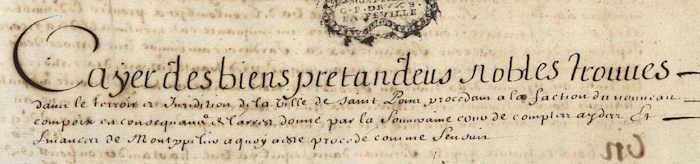 G. P. DEUX S.
LA FEUILLE
Cayer des biens pretandeus nobles trouues
dans le terroir et Juridition de la Ville de saint Pons, procedant a la faction du nouueau
compoix en consequance de l'arrest donné par la Souueraine cour de comptes aydes Et
finances de Montpelier a quoy a esté procedé comme sensuit